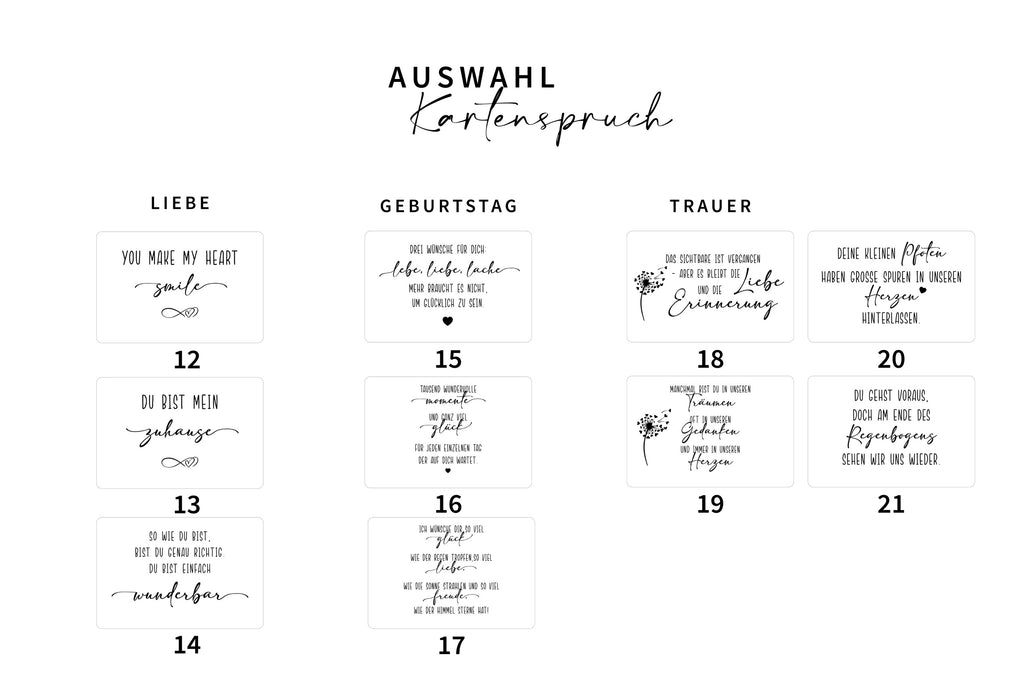 AUSWAHL
Kartenspruch
LIEBE
YOU MAKE MY HEART
smile
12
DU BIST MEIN
zuhause
13
SO WIE DU BIST,
BIST DU GENAU RICHTIG.
DU BIST EINFACH
wunderbar
14
GEBURTSTAG
DREI WÜNSCHE FÜR DICH:
lebe, liebe, lache
MEHR BRAUCHT ES NICHT,
UM GLÜCKLICH ZU SEIN.
15
TAUSEND WUNDERVOLLE
momente
UND GANZ VIEL
glück
FÜR JEDEN EINZELNEN TAG
DER AUF DICH WARTET.
16
ICH WÜNSCHE DIR SO VIEL
glück
WIE DER REGEN TROPFEN,SO VIEL
liebe,
WIE DIE SONNE STRAHLEN UND SO VIEL
freude,
WIE DER HIMMEL STERNE HAT!
17
TRAUER
DAS SICHTBARE IST VERGANGEN
- ABER ES BLEIBT DIE
UND DIE Liebe
Erinnerung
18
MANCHMAL BIST DU IN UNSEREN
Träumen
OFT IN UNSEREN
Gedanken
UND IMMER IN UNSEREN
Herzen
19
DEINE KLEINEN Pfoten
HABEN GROSSE SPUREN IN UNSEREN
Herzen
HINTERLASSEN.
20
DU GEHST VORAUS,
DOCH AM ENDE DES
Regenbogens
SEHEN WIR UNS WIEDER.
21